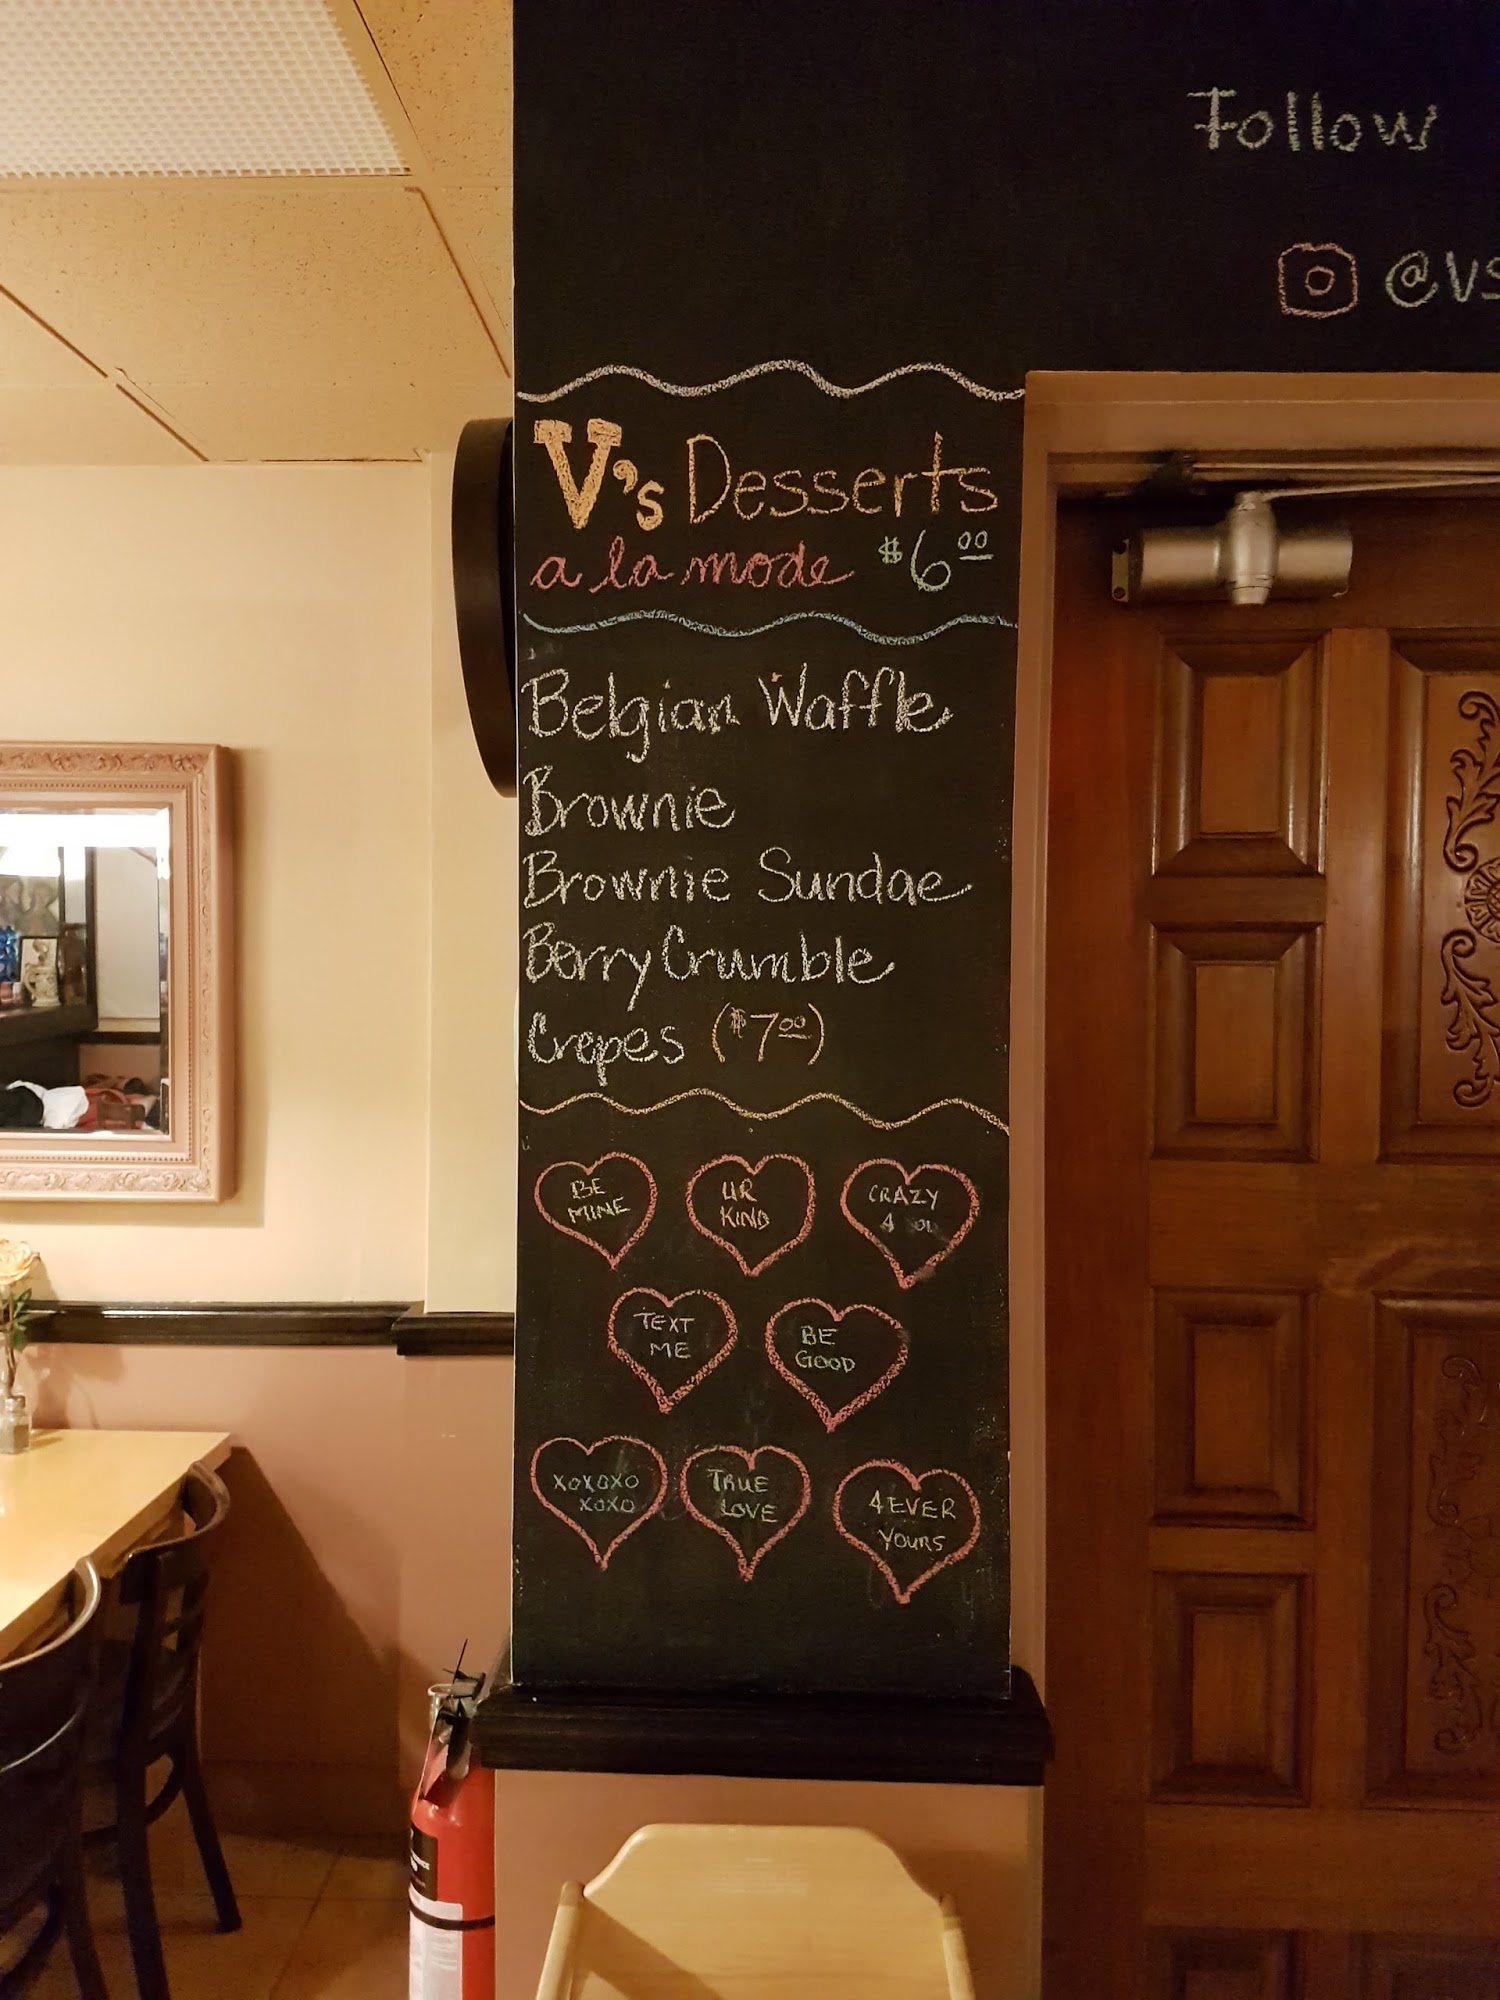 Follow
@VS
V's Desserts
a la mode $6.00
Belgian Waffle
Brownie
Brownie Sundae
Berry Crumble
Crepes ($7.00)
BE
MINE
UR
KIND
CRAZY
4 OU
TEXT
ME
BE
GOOD
XOXOXO
XOXO
TRUE
LOVE
4EVER
YOURS